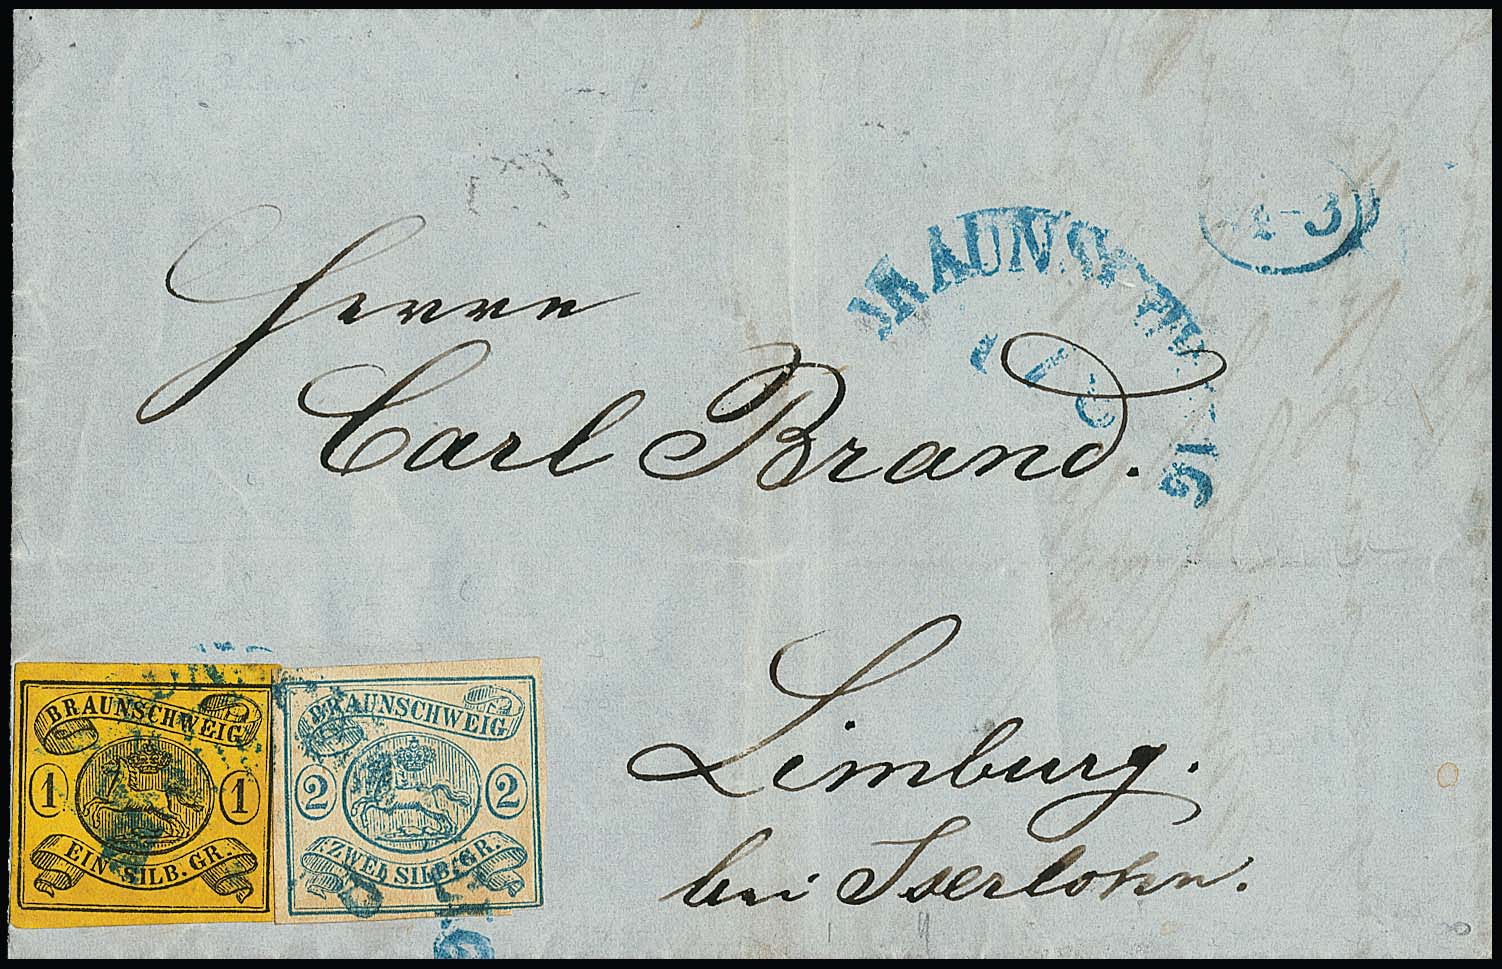 4-3
BRAUNSCHWEIG
Herrn
Carl Brand.
Limburg.
bei Iserlohn.
BRAUNSCHWEIG
1 1
EIN SILB. GR.
BRAUNSCHWEIG
2 2
ZWEI SILB. GR.